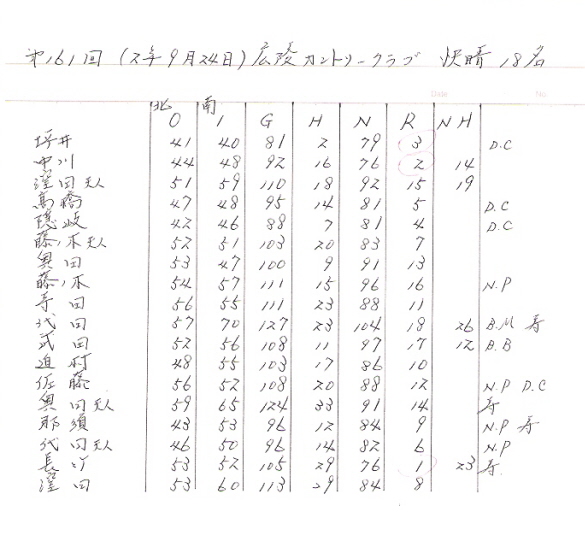 第161回 (2年9月24日) 広陵カントリークラブ 快晴 18名
Date No
北 南
O I G H N R N H
坪井 41 40 81 2 79 3 D.C
中川 44 48 92 16 76 2 14
窪田夫人 51 59 110 18 92 15 19
高橋 47 48 95 14 81 5 D.C
隠岐 42 46 88 7 81 4 D.C
藤ノ木夫人 52 51 103 20 83 7
奥田 53 47 100 9 91 13
藤ノ木 54 57 111 15 96 16 N.P
寺田 56 55 111 23 88 11
代田 57 70 127 23 104 18 26 B.M 寿
武田 52 56 108 11 97 17 12 B.B
迫村 48 55 103 17 86 10
佐藤 56 52 108 20 88 12 N.P D.C
奥田夫人 59 65 124 33 91 14 寿
那須 43 53 96 12 84 9 N.P 寿
代田夫人 46 50 96 14 82 6 N.P
長 53 52 105 29 76 1 23 寿
窪田 53 60 113 29 84 8